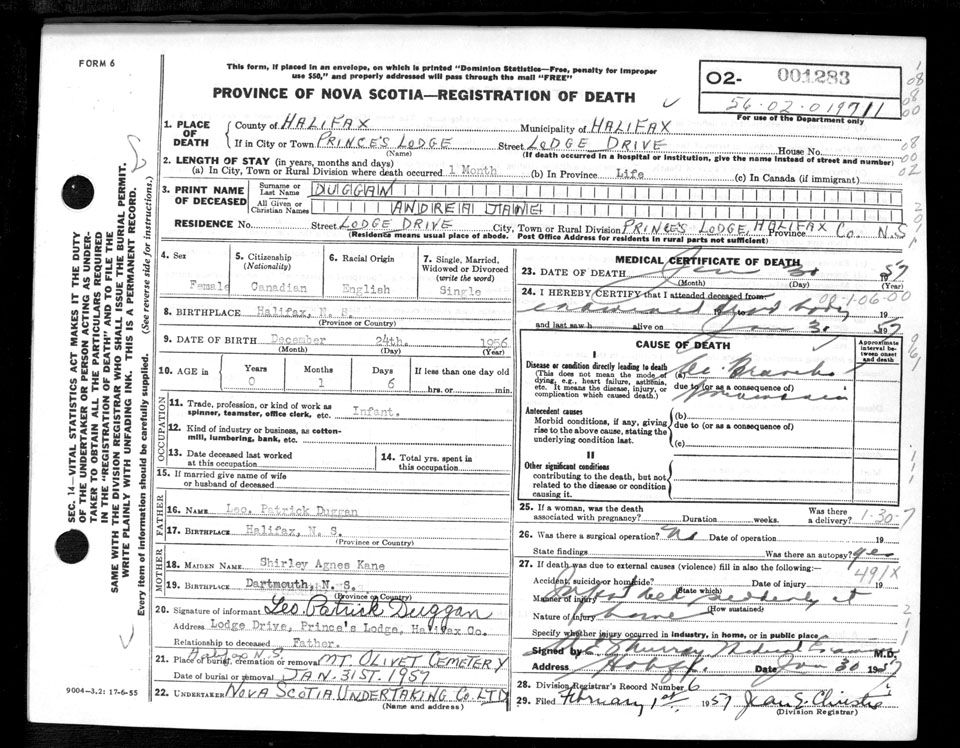 FORM 6
This form, if placed in an envelope, on which is printed "Dominion Statistics—Free, penalty for improper
use $50," and properly addressed will pass through the mail "FREE"
PROVINCE OF NOVA SCOTIA—REGISTRATION OF DEATH
02- 001283
56-02-019711
For use of the Department only
1. PLACE OF DEATH
County of HALIFAX Municipality of HALIFAX
If in City or Town PRINCE'S LODGE Street LODGE DRIVE House No.
(Name) (If death occurred in a hospital or institution, give the name instead of street and number)
2. LENGTH OF STAY (in years, months and days)
(a) In City, Town or Rural Division where death occurred 1 Month (b) In Province Life (c) In Canada (if immigrant)
3. PRINT NAME OF DECEASED
Surname or Last Name DUGGAN
All Given or Christian Names ANDREA JANE
RESIDENCE No. Street LODGE DRIVE City, Town or Rural Division PRINCE'S LODGE, HALIFAX Province Co. N.S
(Residence means usual place of abode. Post Office Address for residents in rural parts not sufficient)
4. Sex
Female
5. Citizenship
(Nationality)
Canadian
6. Racial Origin
English
7. Single, Married,
Widowed or Divorced
(write the word)
Single
8. BIRTHPLACE Halifax, N. S.
(Province or Country)
9. DATE OF BIRTH December 24th. 1956
(Month) (Day) (Year)
10. AGE in Years Months Days If less than one day old
0 1 6 hrs. or min.
OCCUPATION
11. Trade, profession, or kind of work as
spinner, teamster, office clerk, etc. Infant.
12. Kind of industry or business, as cotton-
mill, lumbering, bank, etc.
13. Date deceased last worked
at this occupation
14. Total yrs. spent in
this occupation
15. If married give name of wife
or husband of deceased
FATHER
16. NAME Leo. Patrick Duggan
17. BIRTHPLACE Halifax, N. S.
(Province or Country)
MOTHER
18. MAIDEN NAME Shirley Agnes Kane
19. BIRTHPLACE Dartmouth, N. S.
(Province or Country)
20. Signature of informant Leo. Patrick Duggan
Address Lodge Drive, Prince's Lodge, Halifax Co.
Relationship to deceased Father.
Halifax N.S.
21. Place of burial, cremation or removal MT. OLIVET CEMETERY
Date of burial or removal JAN. 31ST. 1957
22. UNDERTAKER NOVA SCOTIA UNDERTAKING CO. LTD
(Name and address)
MEDICAL CERTIFICATE OF DEATH
23. DATE OF DEATH Jan 30 1957
(Month) (Day) (Year)
24. I HEREBY CERTIFY that I attended deceased from:
examined dead body 19
and last saw h alive on Jan 30 1957
CAUSE OF DEATH
Approximate
interval be-
tween onset
and death
I
Disease or condition directly leading to death
(This does not mean the mode of
dying, e.g., heart failure, asthenia,
etc. It means the disease, injury, or
complication which caused death.)
(a)
due to (or as a consequence of)
Antecedent causes
Morbid conditions, if any, giving
rise to the above cause, stating the
underlying condition last.
(b)
due to (or as a consequence of)
(c)
II
Other significant conditions
contributing to the death, but not
related to the disease or condition
causing it.
25. If a woman, was the death
associated with pregnancy? Duration weeks. Was there
a delivery? 1-30-7
26. Was there a surgical operation? No Date of operation 19
State findings Was there an autopsy? yes
27. If death was due to external causes (violence) fill in also the following:
491X
Accident, suicide or homicide? Date of injury 19
(State which)
Manner of injury died suddenly at
(How sustained)
Nature of injury home
Specify whether injury occurred in industry, in home, or in public place
Signed by Murray Medical M.D.
Address Date Jan 30 1957
28. Division Registrar's Record Number 6
29. Filed February 1st. 1957 Jean E. Christie
(Division Registrar)
SEC. 14—VITAL STATISTICS ACT MAKES IT THE DUTY
OF THE UNDERTAKER OR PERSON ACTING AS UNDER-
TAKER TO OBTAIN ALL THE PARTICULARS REQUIRED
IN THE "REGISTRATION OF DEATH" AND TO FILE THE
SAME WITH THE DIVISION REGISTRAR WHO SHALL ISSUE THE BURIAL PERMIT.
WRITE PLAINLY WITH UNFADING INK. THIS IS A PERMANENT RECORD.
Every item of information should be carefully supplied. (See reverse side for instructions.)
9004—3.2: 17-6-55